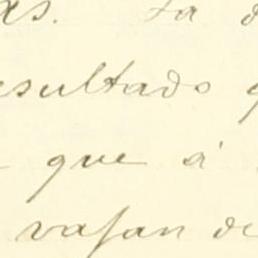 as. La d
esultado q
que á
vasan de